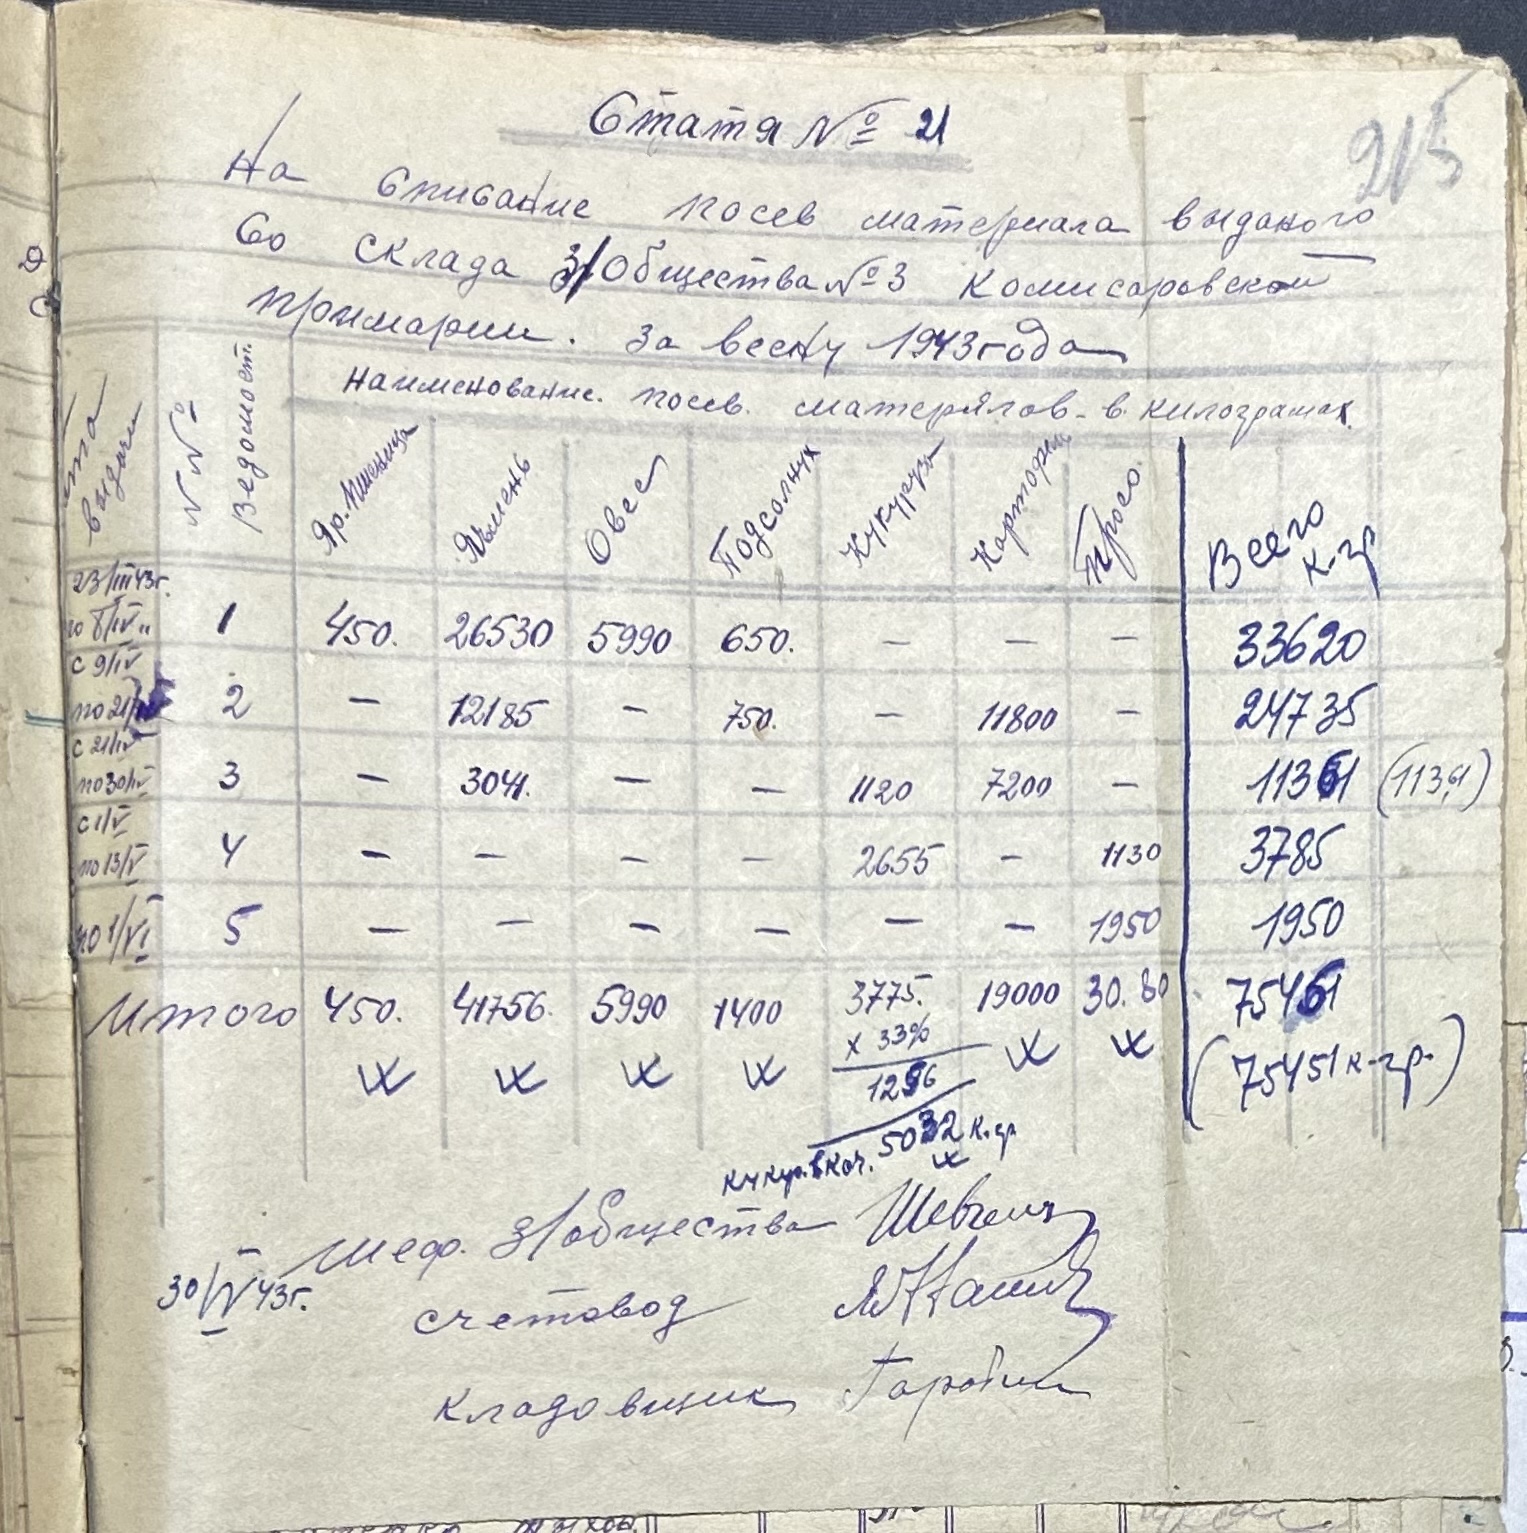 Статя № 21
215
На списание посев материала выданого
Со склада З/Общества №3 Комисаровской
примарии. За весну 1943 года
выдачи
№№ Ведомост.
Наименование. посев. матерялов. в. килограмах.
Яр. Пшеница Ячмень Овес Подсолнух Кукуруза Картофель Просо Всего к-гр
23/III 43г.
по 8/IV " 1 450. 26530 5990 650. — — — 33620
с 9/IV
по 21/IV 2 — 12185 — 750. — 11800 — 24735
с 21/IV
по 30/IV 3 — 3041. — — 1120 7200 — 11361 (11361)
с 1/V
по 13/V 4 — — — — 2655 — 1130 3785
по 1/VI 5 — — — — — — 1950 1950
Итого 450. 41756. 5990 1400 3775. 19000 30.80 75451
х 33%
1256
(75451 к-гр.)
кукур. в кач. 5032 к.гр
Шеф. З/общества
30/VI 43г.
счетовод
кладовщик